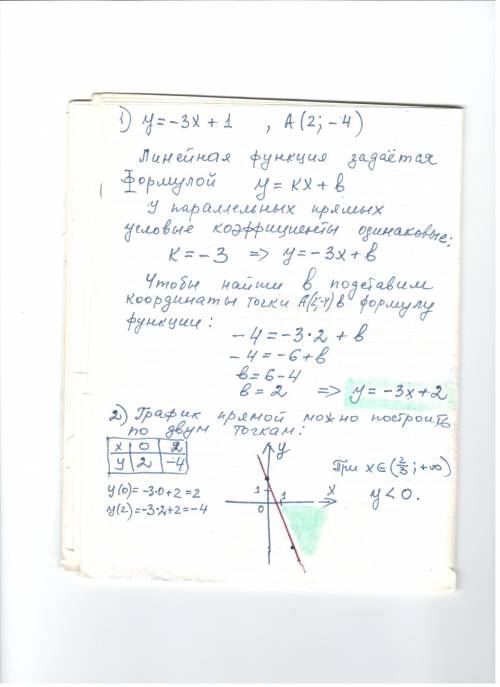 1) y = -3x + 1 , A(2; -4)
Линейная функция задаётся
формулой y = kx + b
У параллельных прямых
угловые коэффициенты одинаковые:
k = -3 => y = -3x + b
Чтобы найти b подставим
координаты точки A(2;-4) в формулу
функции:
-4 = -3·2 + b
-4 = -6 + b
b = 6 - 4
b = 2 => y = -3x + 2
2) График прямой можно построить
по двум точкам:
x 0 2
y 2 -4
y(0) = -3·0 + 2 = 2
y(2) = -3·2 + 2 = -4
y
1
0 1 x
При x ∈ (2/3; +∞)
y < 0.